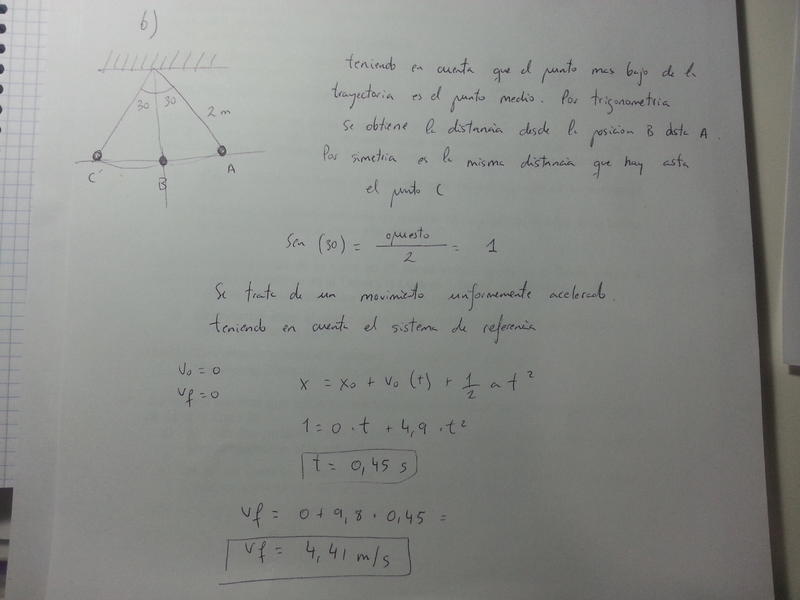 b)
30 30
2 m
C' B A
teniendo en cuenta que el punto mas bajo de la
trayectoria es el punto medio. Por trigonometria
se obtiene la distancia desde la posicion B dsta A.
Por simetria es la misma distancia que hay asta
el punto C
Sen (30) = opuesto / 2 = 1
Se trata de un movimiento uniformemente acelerado.
teniendo en cuenta el sistema de referencia
v0 = 0
vf = 0
x = x0 + v0 (t) + 1/2 a t²
1 = 0 · t + 4,9 · t²
t = 0,45 s
vf = 0 + 9,8 · 0,45 =
vf = 4,41 m/s